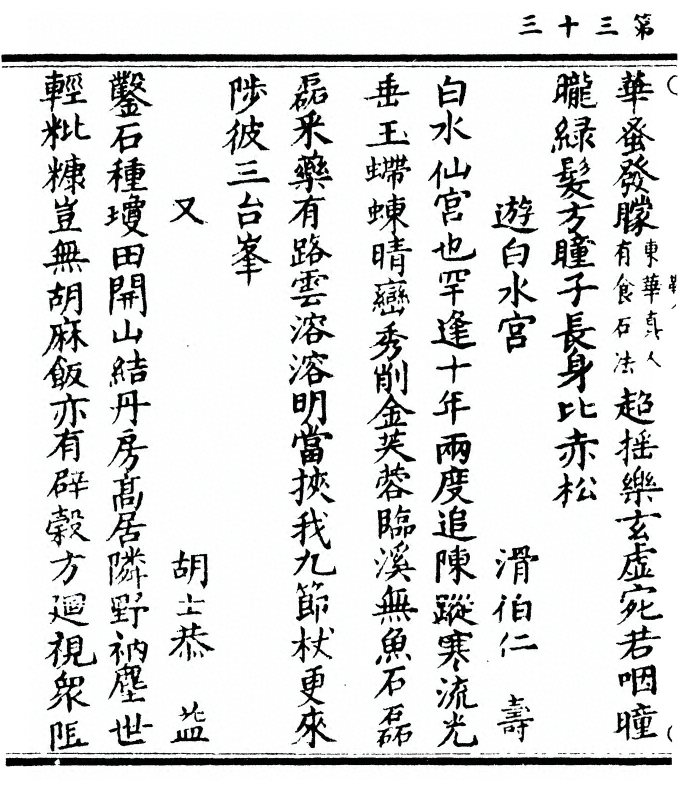 第三十三
華蚤發朦東華真人有食石法超摇樂玄虛宛若咽曈
曨緑髮方瞳子長身比赤松
遊白水宫 滑伯仁 壽
白水仙宮也罕逢十年兩度追陳蹤寒流光
垂玉蝃蝀晴巒秀削金芙蓉臨溪無魚石磊
磊采藥有路雲溶溶明當挾我九節杖更來
陟彼三台峯
又 胡士恭 益
鑿石種瓊田開山結丹房髙居隣野衲塵世
輕粃糠豈無胡麻飯亦有辟榖方廻視衆